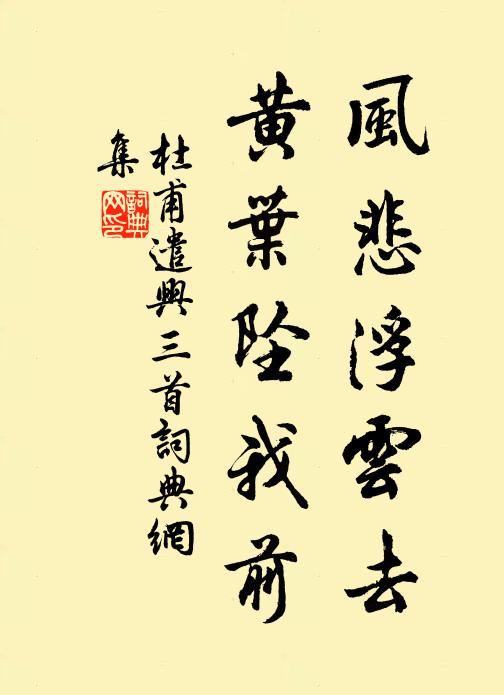 風悲浮雲去
黃葉墜我前
杜甫遣興三首詞典網
集
詞典
网印